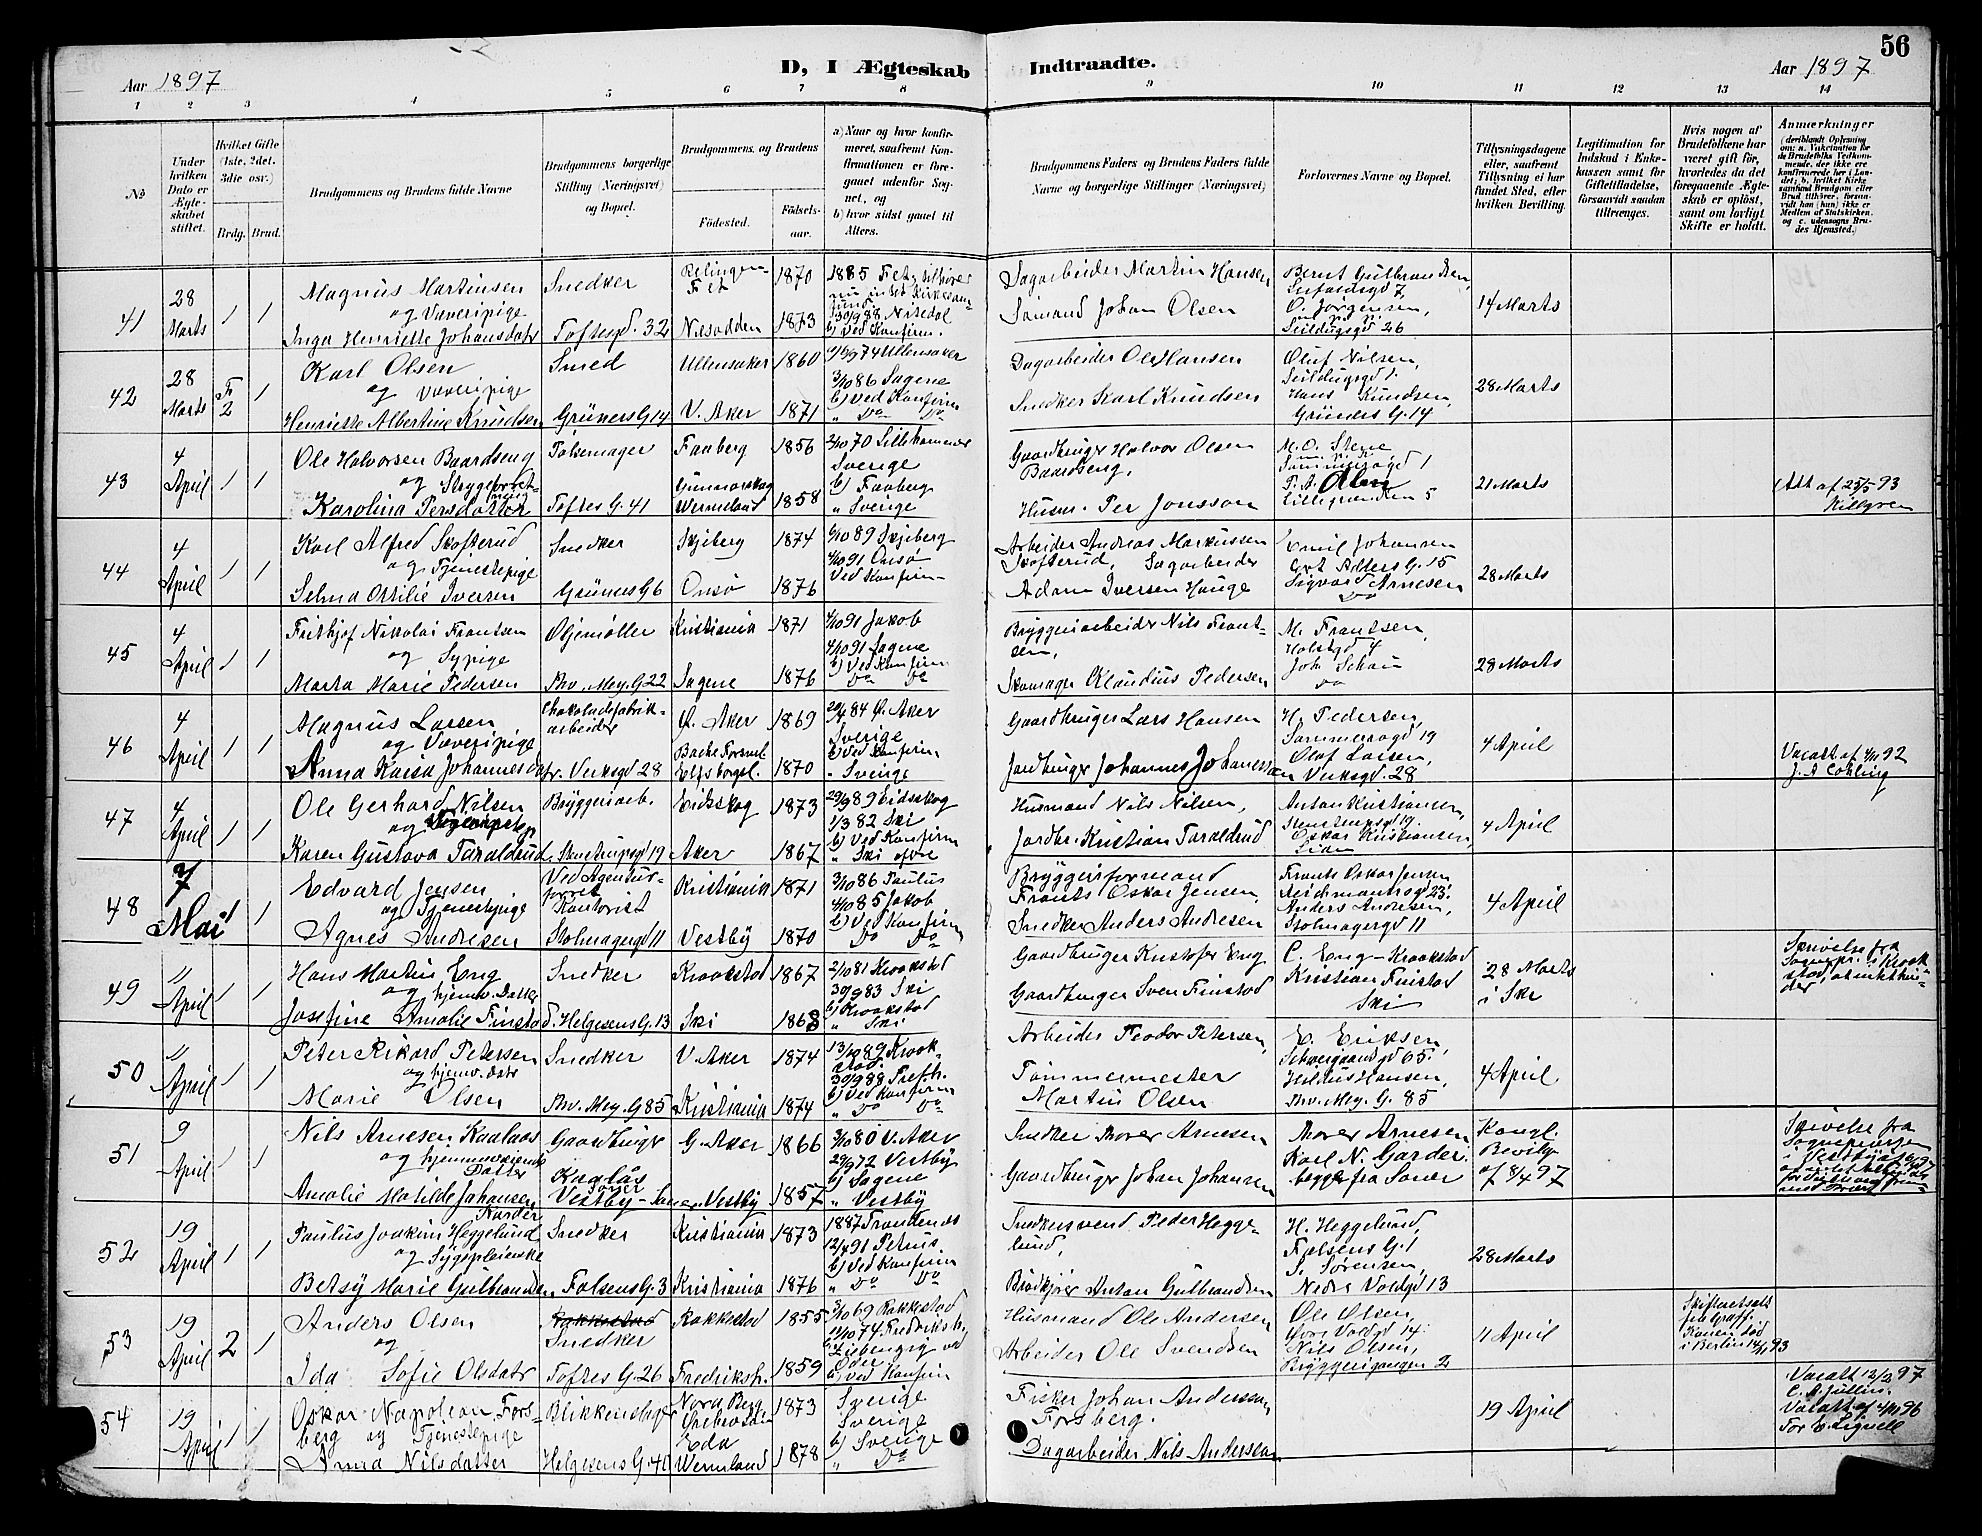 56
Aar 1897
D, I Ægteskab Indtraadte.
Aar 1897
1 2 3 4 5 6 7 8 9 10 11 12 13 14
No
Under hvilken Dato er Ægteskabet stiftet.
Hvilket Gifte (1ste, 2det, 3die osv.)
Brdg. Brud.
Brudgommens og Brudens fulde Navne
Brudgommens borgerlige Stilling (Næringsvei) og Bopæl.
Brudgommens og Brudens
Fødested.
Fødselsaar.
a) Naar og hvor konfirmeret, saafremt Konfirmationen er foregaaet udenfor Sognet, og
b) hvor sidst gaaet til Alters.
Brudgommens Faders og Brudens Faders fulde Navne og borgerlige Stillinger (Næringsvei)
Forlovernes Navne og Bopæl.
Tillysningsdagene eller, saafremt Tillysning ei har fundet Sted, efter hvilken Bevilling.
Legitimation for Indskud i Enkekassen samt for Giftetilladelse, forsaavidt saadan tiltrænges.
Hvis nogen af Brudefolkene har været gift før, hvorledes da det foregaaende Ægteskab er opløst, samt om lovligt Skifte er holdt.
Anmærkninger
41 28 Marts 1 1
Magnus Martinsen
og Væveripige
Inga Henriette Johansdatr
Snedker
Toftesgd. 32
Fet 1870
Næsodden 1873
Dagarbeider Martin Hansen
Sømand Johan Olsen
Bernt Gulbrandsen,
O. Jørgensen,
Seildugsgd 26
14 Marts
42 28 Marts F 2 1
Karl Olsen
og Væveripige
Henriette Albertine Knudsen
Smed
Grüners G. 14
Ullensaker 1860
V. Aker 1871
Ullensaker
3/10 86 Sagene
b) Ved Konfirm
" Do Do
Dagarbeider Ole Hansen
Snedker Karl Knudsen
Oluf Nilsen,
Seildugsgd 1.
Hans Knudsen,
Grüners G. 14
28 Marts
43 4 April 1 1
Ole Halvorsen Baardseng
Karolina Persdatter
Pølsemager
Toftes G. 41
Faaberg 1856
Gunnarskog
Wermeland 1858
2/10 70 Lillehammer
Sverige
b) Faaberg
" Sverige
Gaardbruger Halvor Olsen
Baardseng.
Husm. Per Jonsson
M. O. Stene,
21 Marts
Att af 25/5 93
44 4 April 1 1
Karl Alfred Skofterud
og Tjenestepige
Selma Ottilie Iversen
Snedker
Grüners G 6
Skjeberg 1874
Onsø 1876
6/10 89 Skjeberg
4/10 91 Onsø
Ved Konfirm
Arbeider Andreas Markussen
Skofterud, Dagarbeider
Adam Iversen Hauge
Emil Johansen
Sigvard Arnesen
Do
28 Marts
45 4 April 1 1
Frithjof Nikolai Frantsen
og Sypige
Marta Marie Pedersen
Oljemøller
Thv. Mey. G 22
Kristiania 1871
Sagene 1876
4/10 91 Jakob
4/10 91 Sagene
b) Ved Konfirm
Do Do
Bryggeriarbeider Nils Frantsen,
Skomager Klaudius Pedersen
M. Frantsen,
Holstgd 4
Joh. Schau
Do
28 Marts
46 4 April 1 1
Magnus Larsen
og Væveripige
Anna Kaisa Johannesdatr.
Chokoladefabrikarbeider
Verksgd 28
Ø. Aker 1869
Elfsborgsl. 1870
Ø. Aker
Sverige
b) Ved Konfirm
" Sverige
Gaardbruger Lars Hansen
Jordbruger Johannes Johansson
H. Pedersen,
Sommerrogd 19
Olaf Larsen,
Verksgd. 28
4 April
Vacatt. af 4/11 92
47 4 April 1 1
Ole Gerhard Nilsen
og
Karen Gustava Taraldrud
Bryggeriarb.
Stenstrupsgd 19
Eidskog 1873
Aker 1867
29/9 89 Eidsskog
1/3 82 Ski
b) Ved Konfirm
" Ski
Husmand Nils Nilsen,
Jordbr. Kristian Taraldrud
Anton Kristiansen,
Stenstrupsgd 19.
Oskar Kristiansen,
4 April
48 7 Mai 1 1
Edvard Jensen
og Tjenestepige
Agnes Andresen
Kontorist
Stolmagergd 11
Kristiania 1871
Vestby 1870
3/10 86 Paulus
4/10 85 Jakob
b) Ved Konfirm
Do Do
Bryggeriformand
Frants Oskar Jensen,
Snedker Anders Andresen
Frants Oskar Jensen
Anders Andresen,
Stolmagergd 11
4 April
49 11 April 1 1
Hans Martin Eng
og hjemv. Datter
Josefine Amalie Finstad
Snedker
Helgesens G. 13
Kraakstad 1867
Ski 1868
2/10 81 Kraakstad
30/9 83 Ski
b) Kraakstad
" Ski
Gaardbruger Kristofer Eng
Gaardbruger Sven Finstad
C. Eng - Kraakstad
Kristian Finstad
Ski
28 Marts
i Ski
Skrivelse fra
50 11 April 1 1
Peter Rikard Petersen
og hjemv. Datr
Marie Olsen
Snedker
Thv. Mey. G 85
V. Aker 1874
Kristiania 1874
13/10 89 Kraakstad.
30/9 88 Trefh.
b) Ved Konfirm
" Do Do
Arbeider Teodor Petersen,
Tømmermester
Martin Olsen
E. Eriksen,
Schweigaardsgd 65.
Hilus Hansen,
Thv. Mey. G. 85
4 April
51 9 April 1 1
Nils Arnesen Kaalaas
og hjemmeværende
Datter
Amalie Matilde Johansen
Garder
Gaardbruger
Kaalaas
Vestby
G. Aker 1866
Vestby 1857
3/10 80 V. Aker
29/9 72 Vestby
b) Sagene
" Vestby
Snedker Thorer Arnesen
Gaardbruger Johan Johansen
Thorer Arnesen
Karl N. Garder
begge fra Soner
Kongl.
Bevilg.
af 8/4 97
Skrivelse fra
Sognepræsten
i Vestby
52 19 April 1 1
Paulus Joakim Heggelund
og Sygepleierske
Betsy Marie Gulbrandsen
Snedker
Falsens G. 3
Kristiania 1873
Kristiania 1876
1887 Trondenes
12/4 91 Petrus
b) Ved Konfirm
" Do Do
Snedkersvend Peder Heggelund,
Brødkjører Anton Gulbrandsen
H. Heggelund,
Falsens G. 1
S. Sørensen,
Nedre Voldgd 13
28 Marts
53 19 April 2 1
Anders Olsen
og
Ida Sofie Olsdatr
Rakkestad
Snedker
Toftes G. 26
Rakkestad 1855
Fredrikh. 1859
3/10 69 Rakkestad
11/10 74 Fredriksh.
b) Ved Konfirm
Husmand Ole Andersen
Arbeider Ole Svendsen
Ole Olsen,
Øvre Voldgd 14.
Nils Olsen,
Bryggerigangen 2
11 April
Skifteretsatt
Konen død
i Berlin 14/11 93
54 19 April 1 1
Oskar Napoleon Forsberg
og Tjenestepige
Anna Nilsdatter
Blikkenslager
Helgesens G. 40
Nora Berg
Eda
Wermland
1873
1878
Sverige
Sverige
b) Sverige
" Do
Fisker Johan Andersson
Forsberg.
Dagarbeider Nils Andersson
19 April
Vacatt 12/3 97
Vacatt af 4/11 96